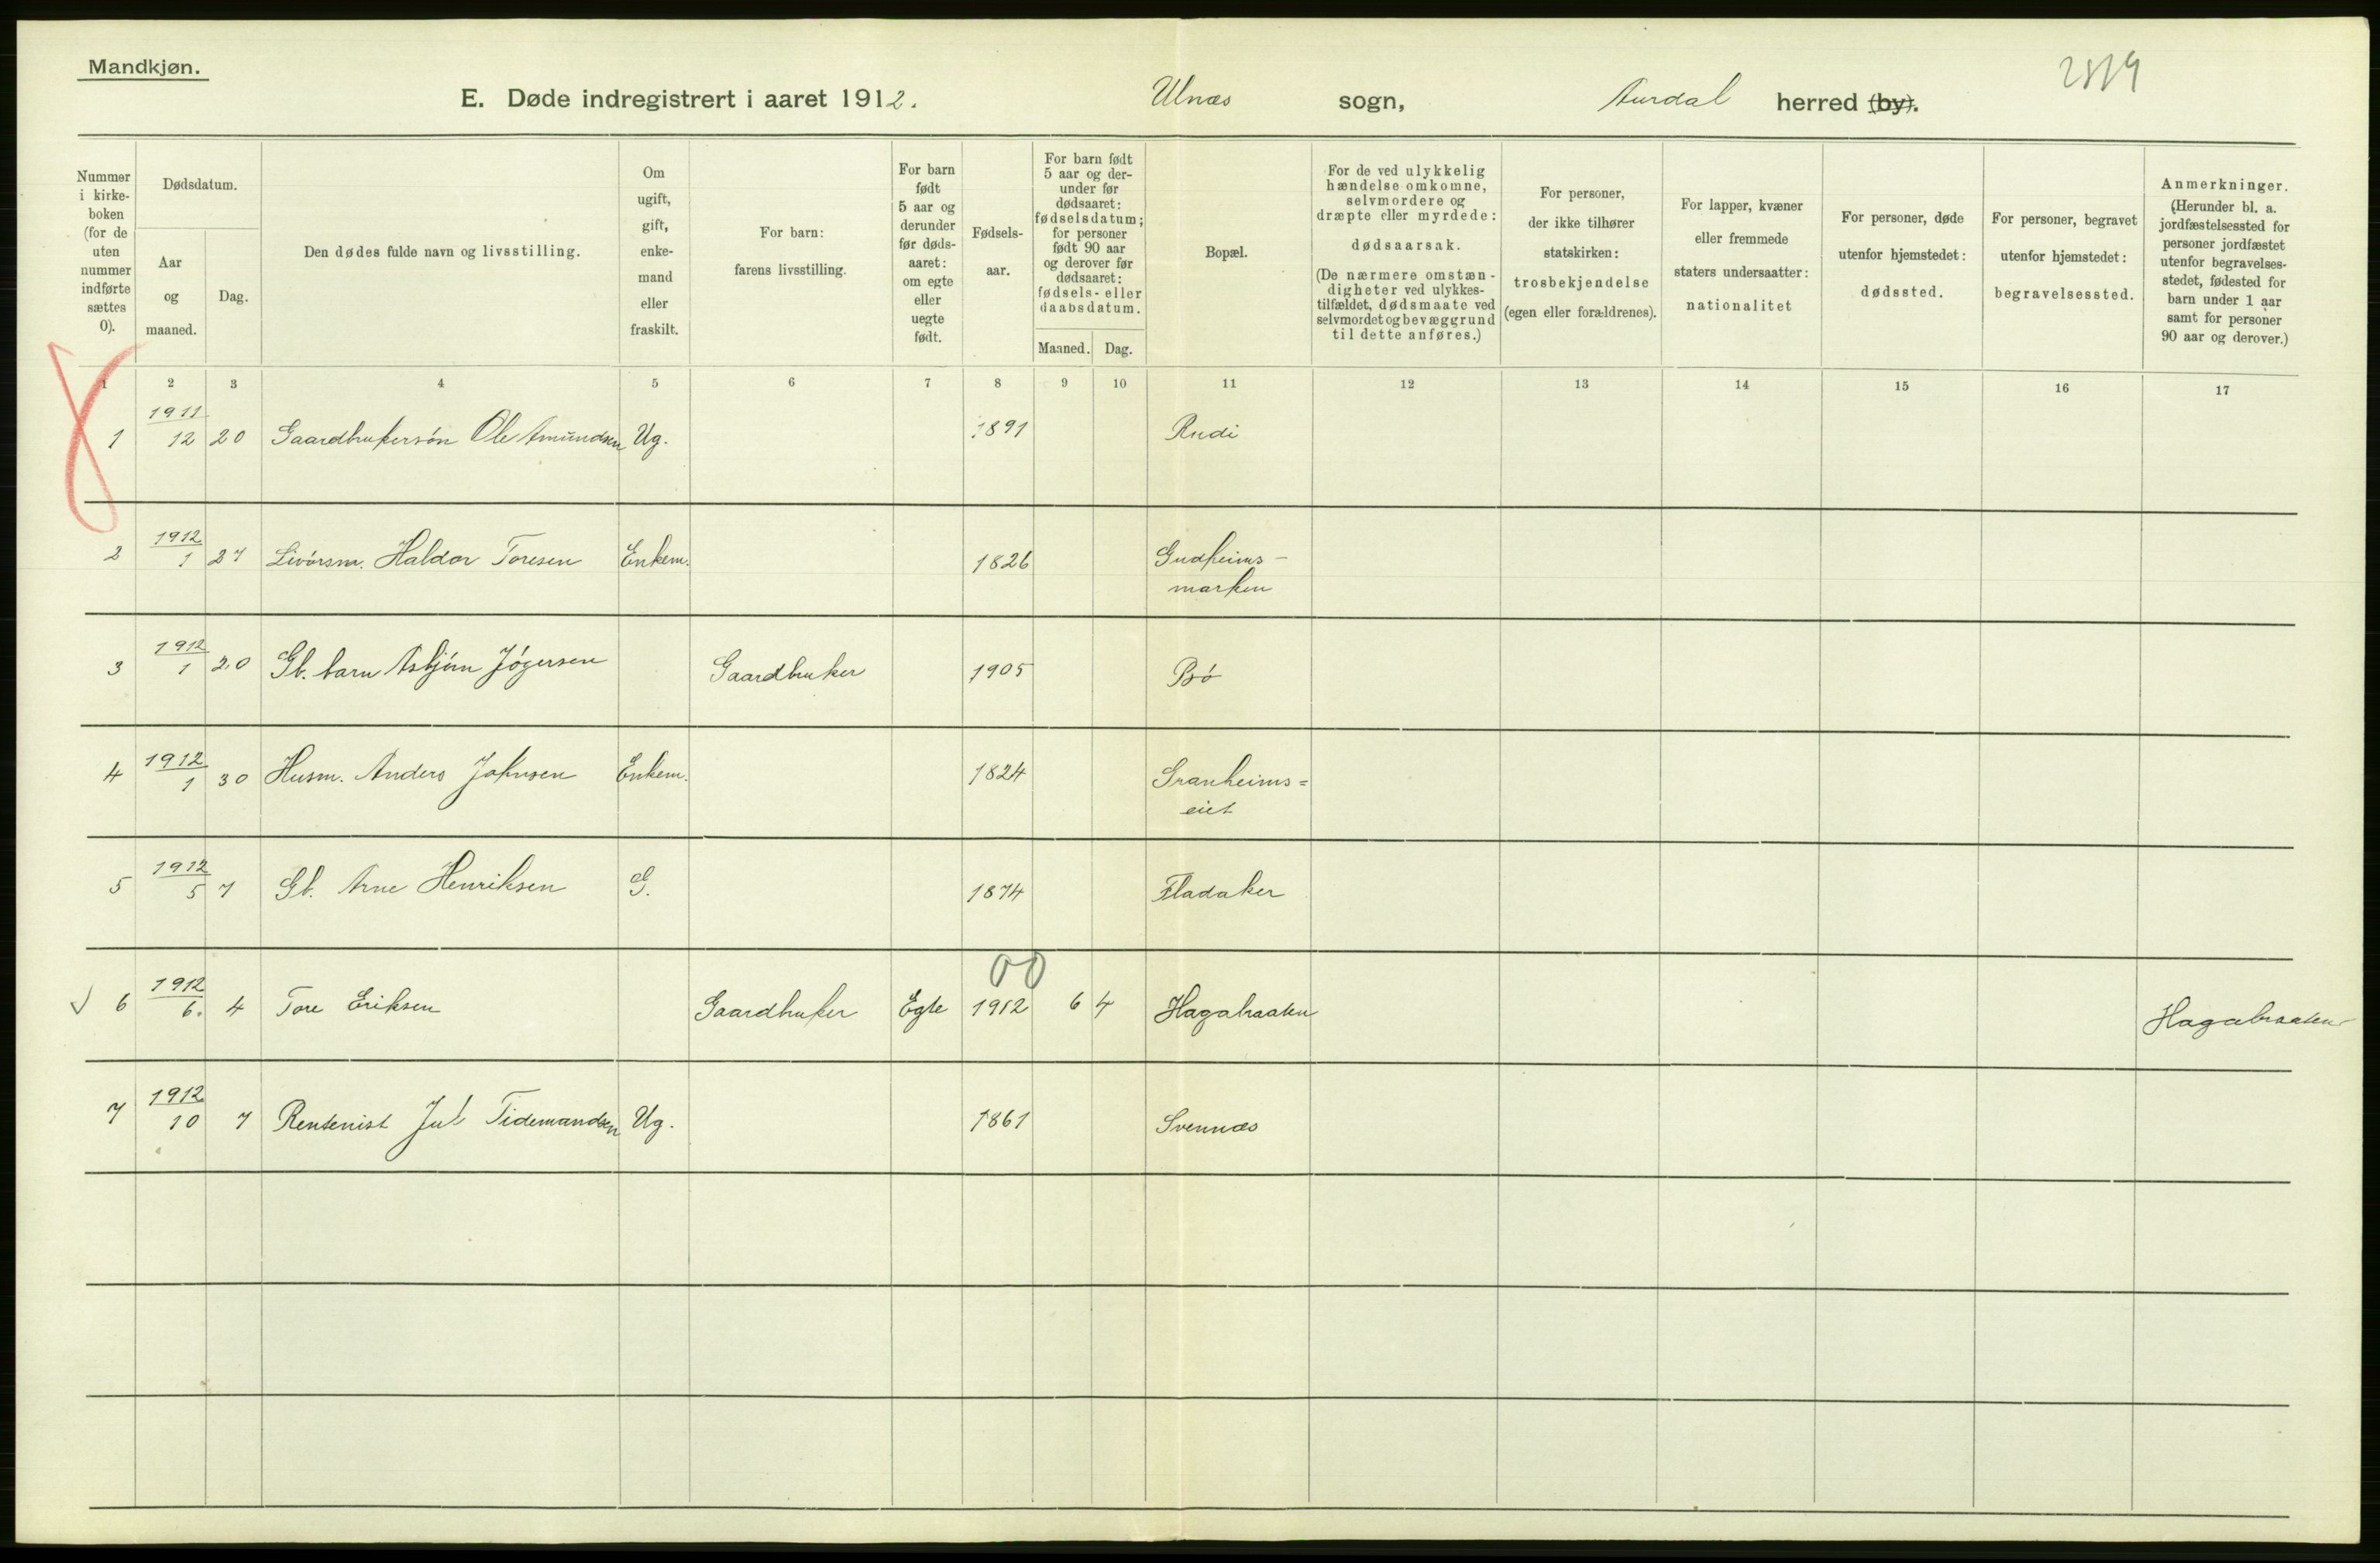 Mandkjøn.
2519
E. Døde indregistrert i aaret 1912. Ulnæs sogn, Aurdal herred (by).
Nummer i kirke-boken (for de uten nummer indførte sættes 0).
Dødsdatum.
Aar og maaned.
Dag.
Den dødes fulde navn og livsstilling.
Om ugift, gift, enke-mand eller fraskilt.
For barn: farens livsstilling.
For barn født 5 aar og derunder før døds-aaret: om egte eller uegte født.
Fødsels-aar.
For barn født 5 aar og der-under før dødsaaret: fødselsdatum; for personer født 90 aar og derover før dødsaaret: fødsels- eller daabsdatum.
Maaned. Dag.
Bopæl.
For de ved ulykkelig hændelse omkomne, selvmordere og dræpte eller myrdede: dødsaarsak. (De nærmere omstæn-digheter ved ulykkes-tilfældet, dødsmaate ved selvmordet og bevæggrund til dette anføres.)
For personer, der ikke tilhører statskirken: trosbekjendelse (egen eller forældrenes).
For lapper, kvæner eller fremmede staters undersaatter: nationalitet
For personer, døde utenfor hjemstedet: dødssted.
For personer, begravet utenfor hjemstedet: begravelsessted.
Anmerkninger. (Herunder bl. a. jordfæstelsessted for personer jordfæstet utenfor begravelses-stedet, fødested for barn under 1 aar samt for personer 90 aar og derover.)
1 2 3 4 5 6 7 8 9 10 11 12 13 14 15 16 17
1911
1 12 20 Gaardbrukersøn Ole Amundsen Ug. 1891 Rudi
1912
2 1 27 Livørsm. Haldor Toresen Enkem. 1826 Gudheims-
marken
1912
3 1 20 Gb. barn Asbjörn Jögersen Gaardbruker 1905 Bö
1912
4 1 30 Husm. Anders Johnsen Enkem. 1824 Granheims=
eiet
1912
5 5 7 Gb. Arne Henriksen G. 1874 Fladaker
00
1912
6 6. 4 Tore Eriksen Gaardbruker Egte 1912 6 4 Hagabraaten Hagabraaten
1912
7 10 7 Rentenist Jul Tidemandsen Ug. 1861 Svennæs